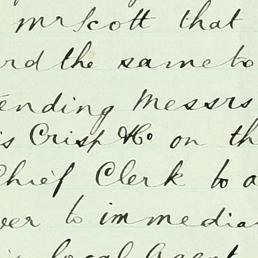 mr Scott that
rd the same to
ending Messrs
is Crisp & Co on th
Chief Clerk to a
ver to immedia
is local Agent